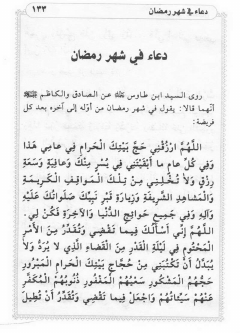 دعاء في شهر رمضان
١٣٣
دعاء في شهر رمضان
روى السيد ابن طاوس عن الصادق والكاظم
أنّهما قالا: يقول في شهر رمضان من أوّله إلى آخره بعد كل
فريضة:
اللَّهُمَّ ارْزُقْنِي حَجَّ بَيْتِكَ الْحَرَامِ فِي عَامِي هٰذَا
وَفِي كُلِّ عَامٍ مَا أَبْقَيْتَنِي فِي يُسْرٍ مِنْكَ وَعَافِيَةٍ وَسَعَةِ
رِزْقٍ وَلَا تُخْلِنِي مِنْ تِلْكَ الْمَوَاقِفِ الْكَرِيمَةِ
وَالْمَشَاهِدِ الشَّرِيفَةِ وَزِيَارَةِ قَبْرِ نَبِيِّكَ صَلَوَاتُكَ عَلَيْهِ
وَآلِهِ وَفِي جَمِيعِ حَوَائِجِ الدُّنْيَا وَالْآخِرَةِ فَكُنْ لِي.
اللَّهُمَّ إِنِّي أَسْأَلُكَ فِيمَا تَقْضِي وَتُقَدِّرُ مِنَ الْأَمْرِ
الْمَحْتُومِ فِي لَيْلَةِ الْقَدْرِ مِنَ الْقَضَاءِ الَّذِي لَا يُرَدُّ وَلَا
يُبَدَّلُ أَنْ تَكْتُبَنِي مِنْ حُجَّاجِ بَيْتِكَ الْحَرَامِ الْمَبْرُورِ
حَجُّهُمُ الْمَشْكُورِ سَعْيُهُمُ الْمَغْفُورِ ذُنُوبُهُمُ الْمُكَفَّرِ
عَنْهُمْ سَيِّئَاتُهُمْ وَاجْعَلْ فِيمَا تَقْضِي وَتُقَدِّرُ أَنْ تُطِيلَ